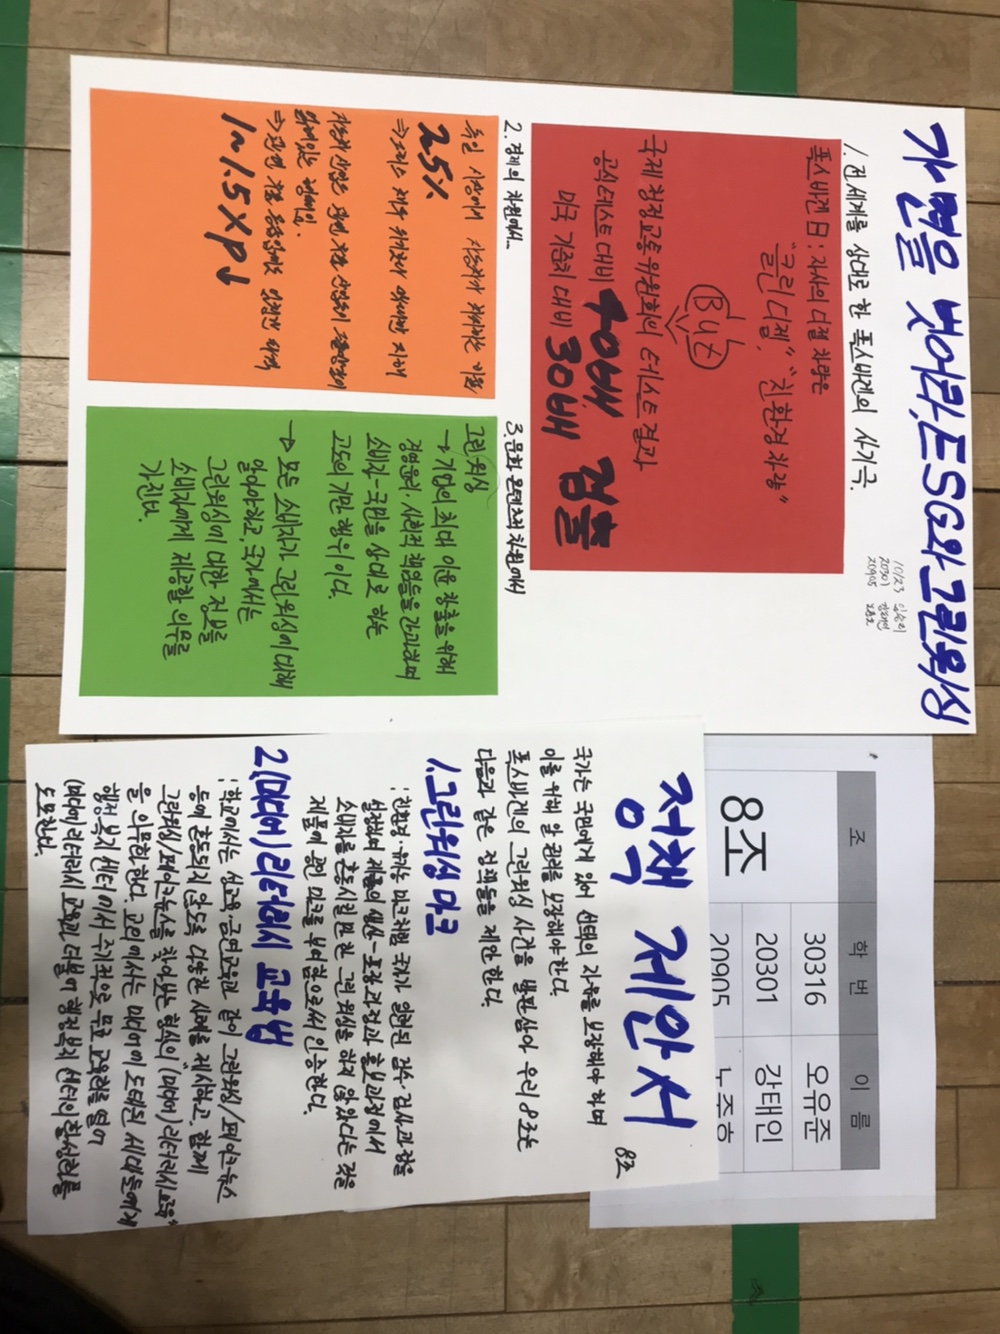 가면을 벗어라, ESG와 그린워싱
1. 전세계를 상대로 한 폭스바겐의 사기극.
20301 강태인
20905
폭스바겐 日: 자사의 디젤 차량은
"클린디젤", "친환경차량"
But
국제 청정교통 위원회의 테스트 결과
공식테스트 대비 40배,
미국 기준치 대비 30배 검출
2. 경제의 차원에서..
독일 시장에서 자동차가 차지하는 비율
25%
⇒ 그리스 재정 위기보다 막대한 지장
1~1.5%p↓
3. 문화 콘텐츠적 차원에서
그린워싱
→ 기업이 최대 이윤 창출을 위해
경영윤리, 사회적 책임들을 간과하며
소비자·국민을 상대로 하는
고도의 기만 행위이다.
→ 모든 소비자가 그린워싱에 대해
알아야하고, 국가에서는
그린워싱에 대한 정보를
소비자에게 제공할 의무를
가진다.
정책 제안서
8조
국가는 국민에게 있어 선택의 자유를 보장해야 하며
이를 위해 알 권리를 보장해야 한다.
폭스바겐의 그린워싱 사건을 발판삼아 우리 8조는
다음과 같은 정책들을 제안한다.
1. 그린워싱 마크
: 친환경·유기농 마크처럼 국가가 엄격한 검수·검사과정을
설정하여 제품의 생산-포장 전과정과 홍보과정에서
소비자를 혼동시킬 만한 그린워싱을 하지 않았다는 것을
제품에 관련 마크를 부여함으로써 인증한다.
2. (미디어) 리터러시 교육법
: 학교에서는 성교육·금연교육과 같이 그린워싱/페이크뉴스
등에 혼동되지 않도록 다양한 사례를 제시하고, 함께
그린워싱/페이크뉴스를 찾아보는 형식의 "(미디어)리터러시교육"
을 의무화한다. 고리에서는 미디어에 도태된 세대들에게
행정복지센터에서 주기적으로 무료 교육관을 열어
(미디어)리터러시 교육과 더불어 행정복지센터의 활성화를
도모한다.
조 학번 이름
8조 30316 오유준
20301 강태인
20905